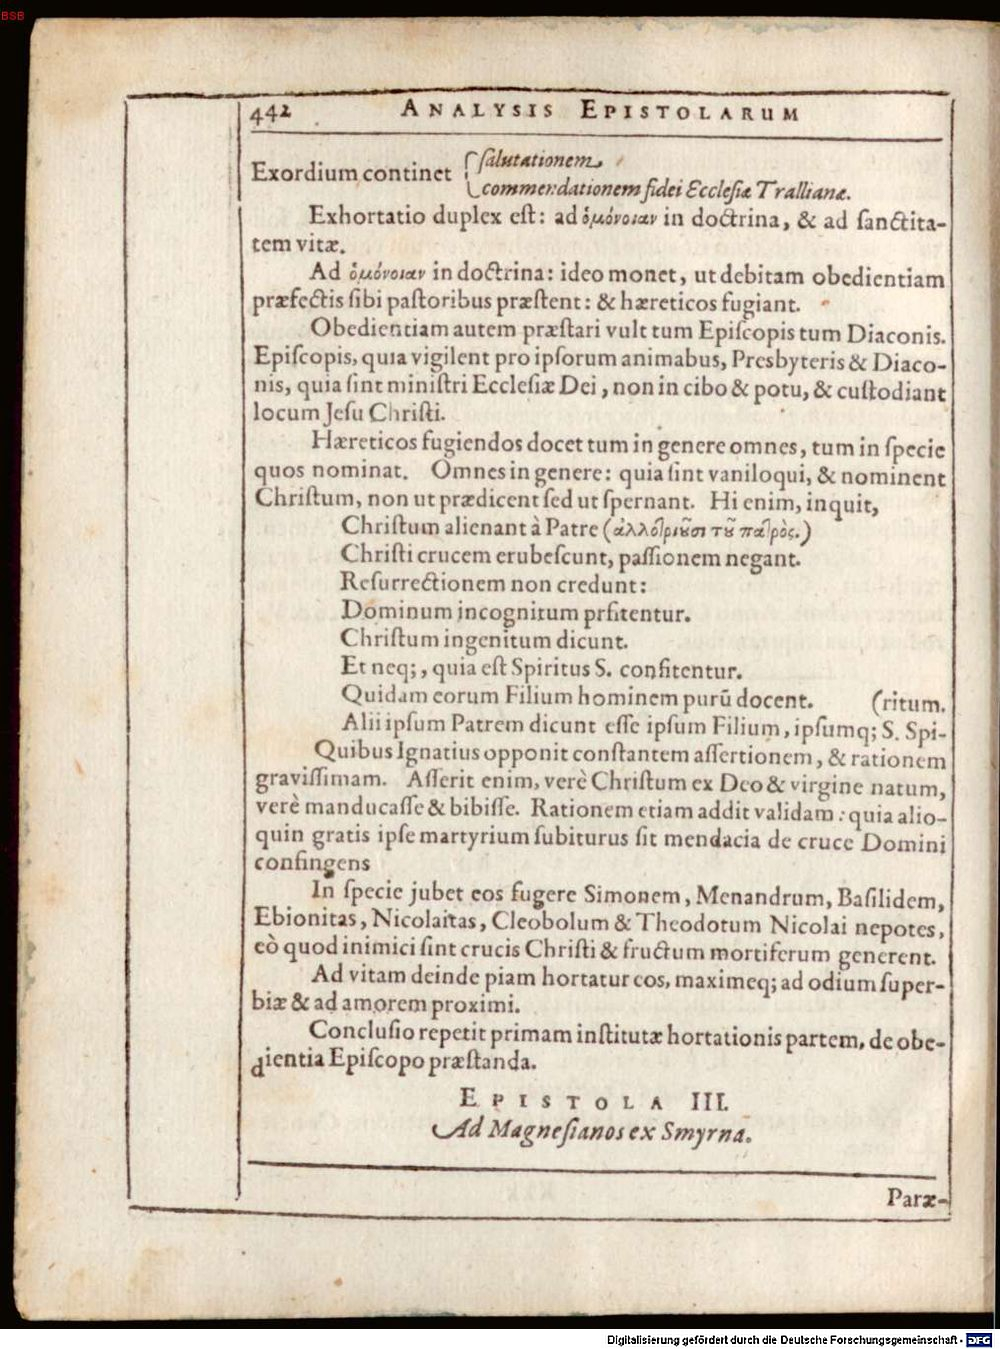 BSB
442 ANALYSIS EPISTOLARUM
Exordium continet { salutationem
commendationem fidei Ecclesiæ Trallianæ.
Exhortatio duplex est: ad ὁμόνοιαν in doctrina, & ad sanctita-
tem vitæ.
Ad ὁμόνοιαν in doctrina: ideo monet, ut debitam obedientiam
præfectis sibi pastoribus præstent: & hæreticos fugiant.
Obedientiam autem præstari vult tum Episcopis tum Diaconis.
Episcopis, quia vigilent pro ipsorum animabus, Presbyteris & Diaco-
nis, quia sint ministri Ecclesiæ Dei, non in cibo & potu, & custodiant
locum Jesu Christi.
Hæreticos fugiendos docet tum in genere omnes, tum in specie
quos nominat. Omnes in genere: quia sint vaniloqui, & nominent
Christum, non ut prædicent sed ut spernant. Hi enim, inquit,
Christum alienant à Patre (ἀλλοτριοῦσι τοῦ πατρὸς.)
Christi crucem erubescunt, passionem negant.
Resurrectionem non credunt:
Dominum incognitum prfitentur.
Christum ingenitum dicunt.
Et neq;, quia est Spiritus S. confitentur.
Quidam eorum Filium hominem purū docent. (ritum.
Alii ipsum Patrem dicunt esse ipsum Filium, ipsumq; S. Spi-
Quibus Ignatius opponit constantem assertionem, & rationem
gravissimam. Asserit enim, verè Christum ex Deo & virgine natum,
verè manducasse & bibisse. Rationem etiam addit validam: quia alio-
quin gratis ipse martyrium subiturus sit mendacia de cruce Domini
confingens
In specie jubet eos fugere Simonem, Menandrum, Basilidem,
Ebionitas, Nicolaitas, Cleobolum & Theodotum Nicolai nepotes,
eò quod inimici sint crucis Christi & fructum mortiferum generent.
Ad vitam deinde piam hortatur eos, maximeq; ad odium super-
biæ & ad amorem proximi.
Conclusio repetit primam institutæ hortationis partem, de obe-
dientia Episcopo præstanda.
EPISTOLA III.
Ad Magnesianos ex Smyrna.
Paræ-
Digitalisierung gefördert durch die Deutsche Forschungsgemeinschaft - DFG